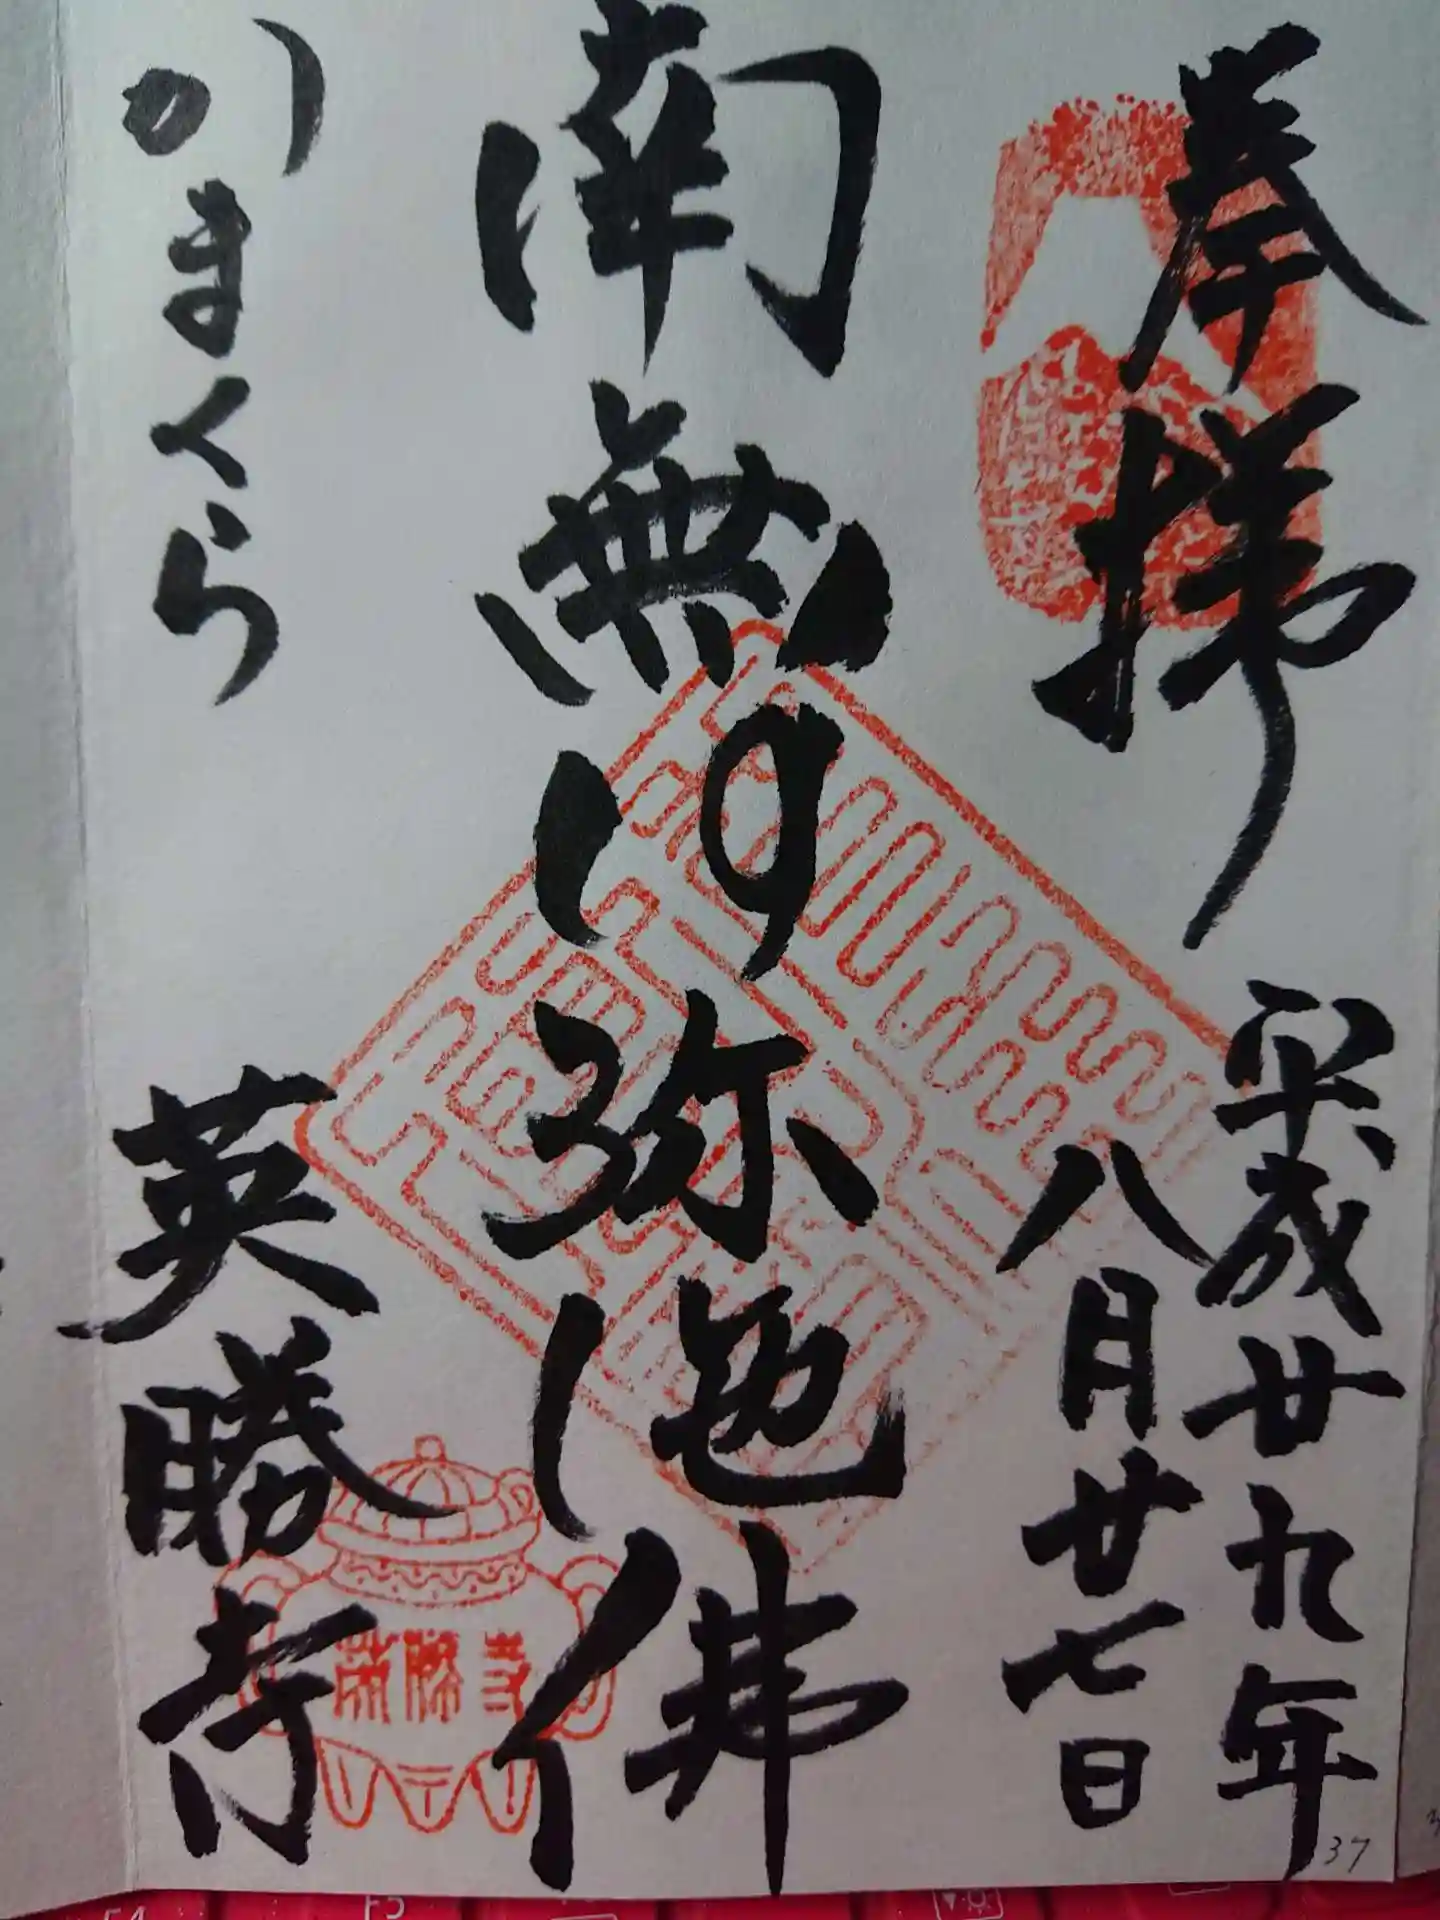 奉拝
平成廿九年
八月廿七日
南無阿弥陀佛
かまくら
英勝寺
英勝寺
37
F4
F5